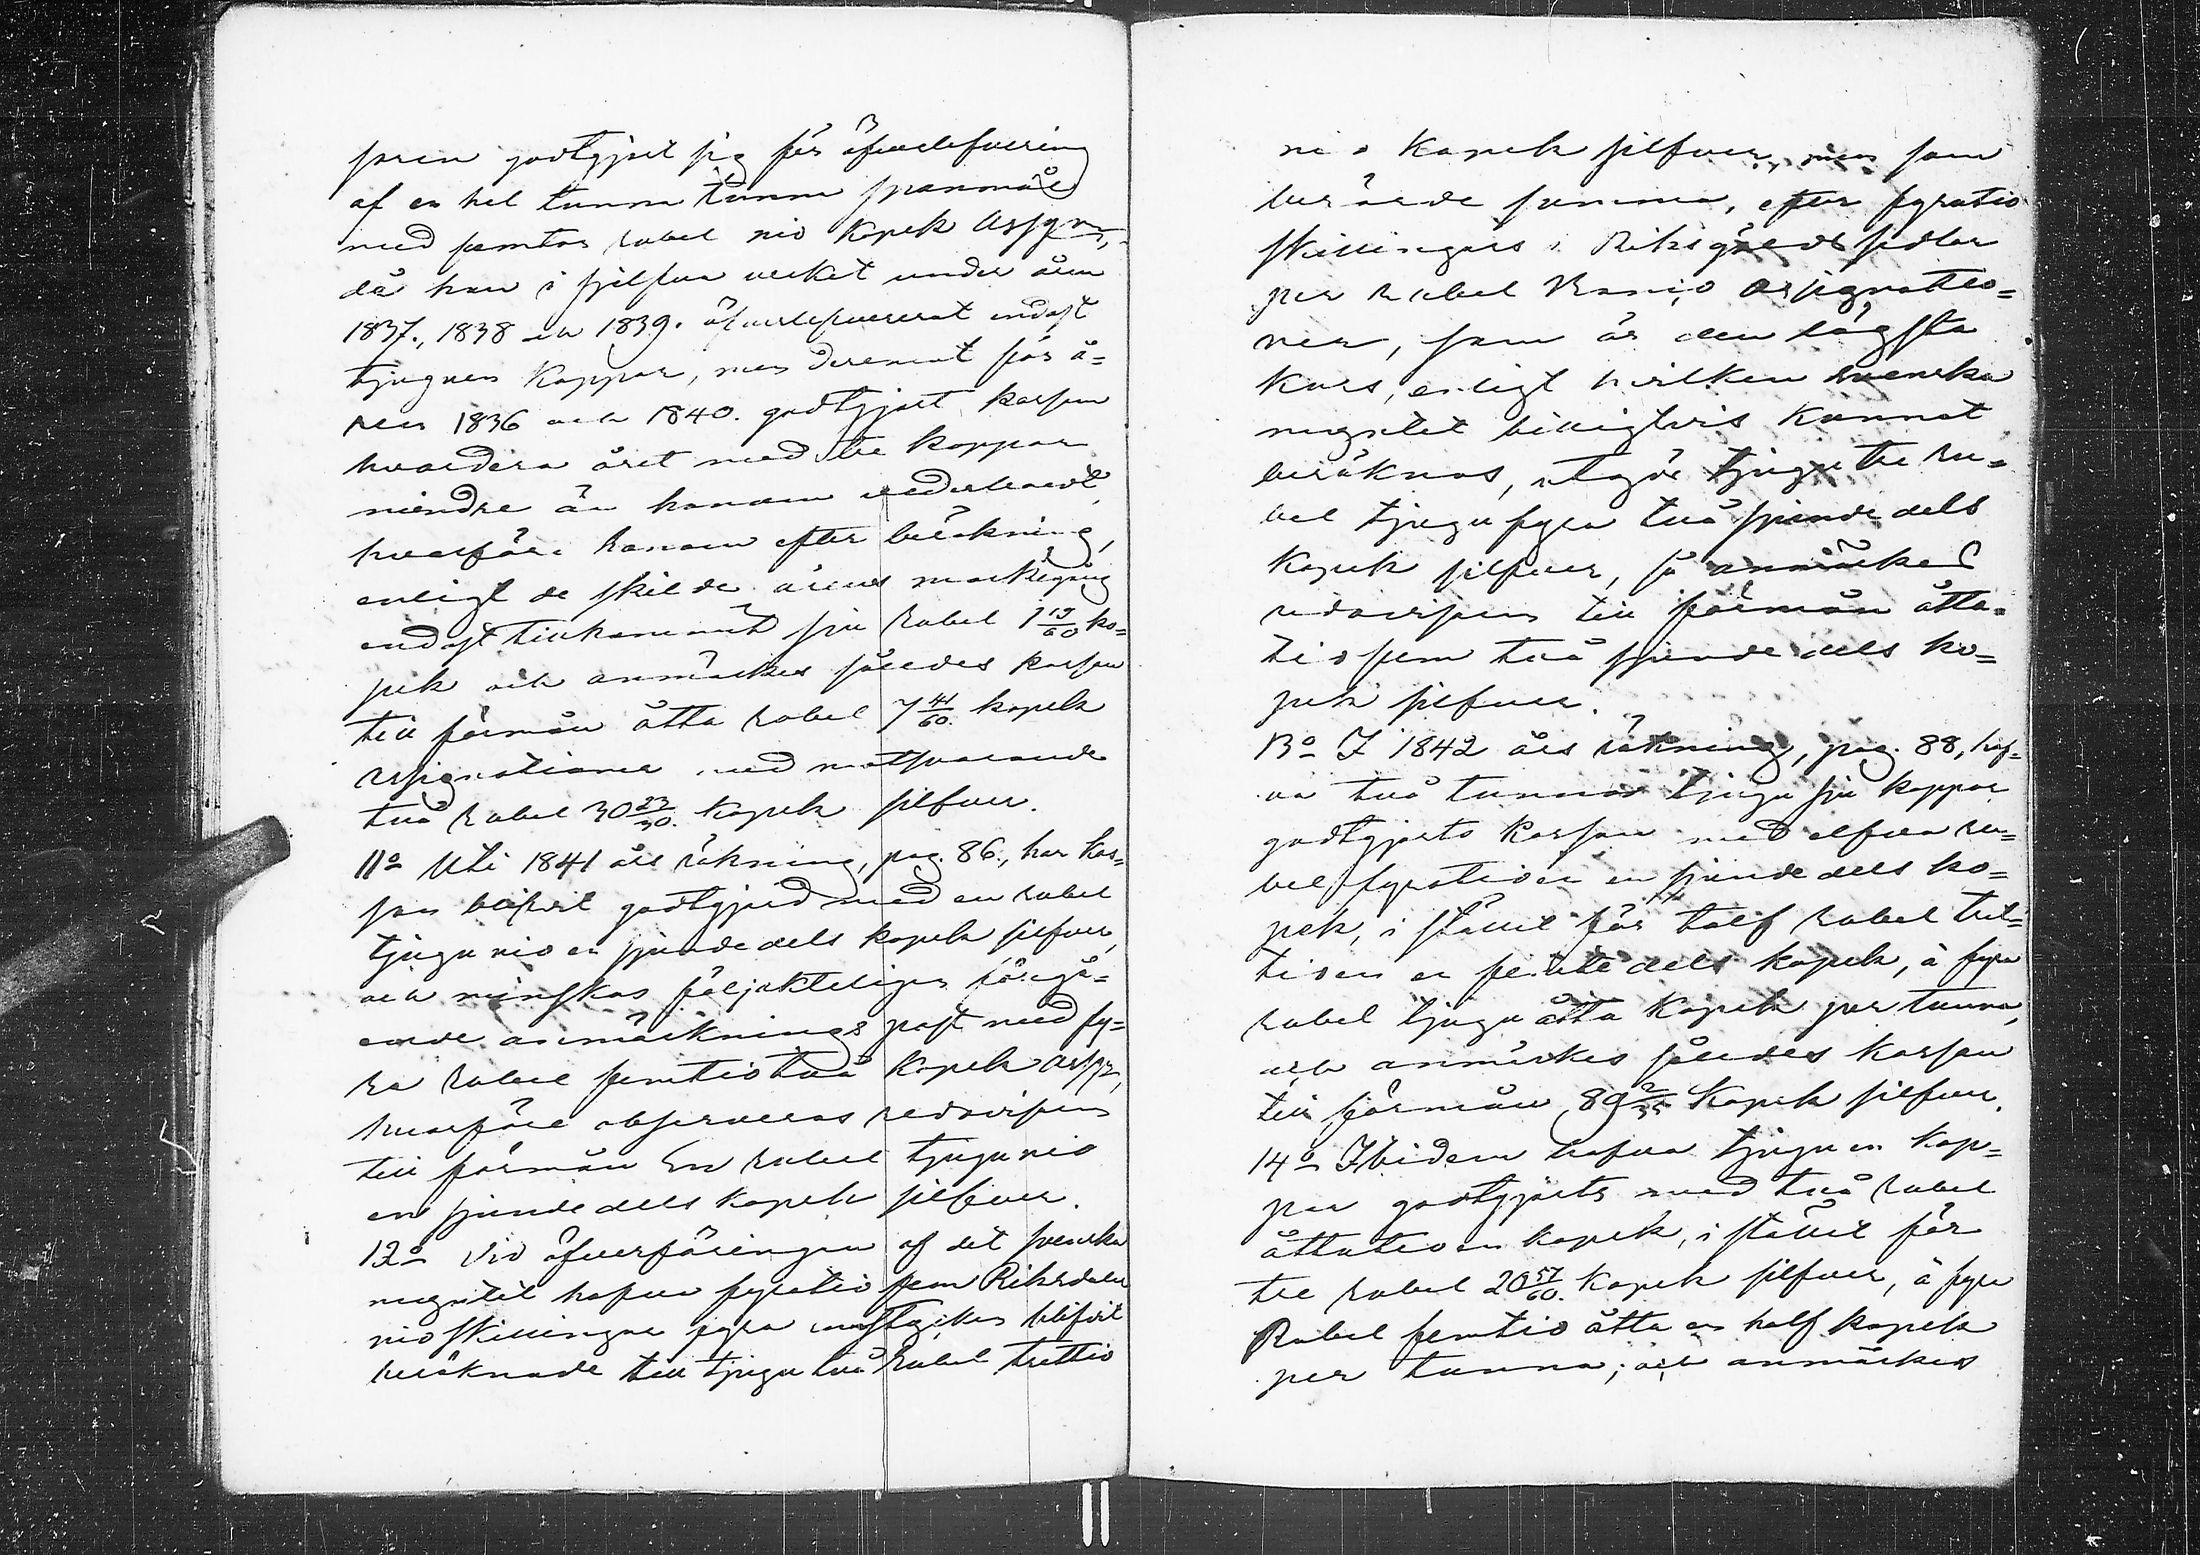 soren godtgjort sig för öfverlefvering
af en hel tunna tunna spanmål
med femton rubel nio kopek Assgn,
då han i sjelfva verket under åren
1837., 1838 och 1839. öfverlefvererat endast
tjuguen kappar, men deremot för å-
ren 1836 och 1840. godtgjort kassan
hvardera året med tre kappar
mindre än honom vederbordt,
hvarföre honom efter beräkning,
enligt de skilde årens markegång
endast tillkommit sju rubel 1 19/60 ko-
pek och anmärkes således kassan
till förmån åtta rubel 7 41/60. kopek
Assignationer med motsvarande
två rubel 30 23/30. kopek silfver.
11o Uti 1841 års räkning, pag. 86., har kas-
san blifvit godtgjord med en rubel
tjugunio en sjundedels kopek silfver,
och minskas följakteligen föregå-
ende anmärknings post med fy-
ra rubel femtiotvå kopek Assgn,
hvarföre observeras redovisaren
till förmån En rubel tjugunio
en sjundedels kopek silfver.
12o Vid öfverföringen af det svenska
myntet hafva fyratiofem Riksdaler
nio skillingar fyra runstycken blifvit
beräknade till tjugutvå Rubel trettio
nio kopek silfver, men som
berörde summa, efter fyratio
skillingars i Riksgälds sedlar
per rubel Banco Assignatio-
ner, som är den lägsta
kurs, enligt hvilken svenska
myntet billigtvis kunnat
beräknas, utgör tjugutre ru-
bel tjugufyra två sjundedels
kopek silfver, så anmärkes
redovisaren till förmån åtta-
tiofem två sjundedels ko-
pek silfver.
13o I 1842 års räkning, pag. 88, haf-
va två tunnor tjugusju kappar
godtgjorts kassan med elfva ru-
bel fyratioen en sjundedels ko-
pek, i stället för tolf rubel tret-
tioen en femtedels kopek, à fyra
rubel tjuguåtta kopek per tunna,
och anmärkes således kassan
till förmån, 89 2/35 kopek silfver.
14o Ibidem hafva tjuguen kap-
par godtgjorts med två rubel
åttatioen kopek, i stället för
tre rubel 20 57/60. kopek silfver, à fyra
Rubel femtioåtta en half kopek
per tunna; och anmärkes